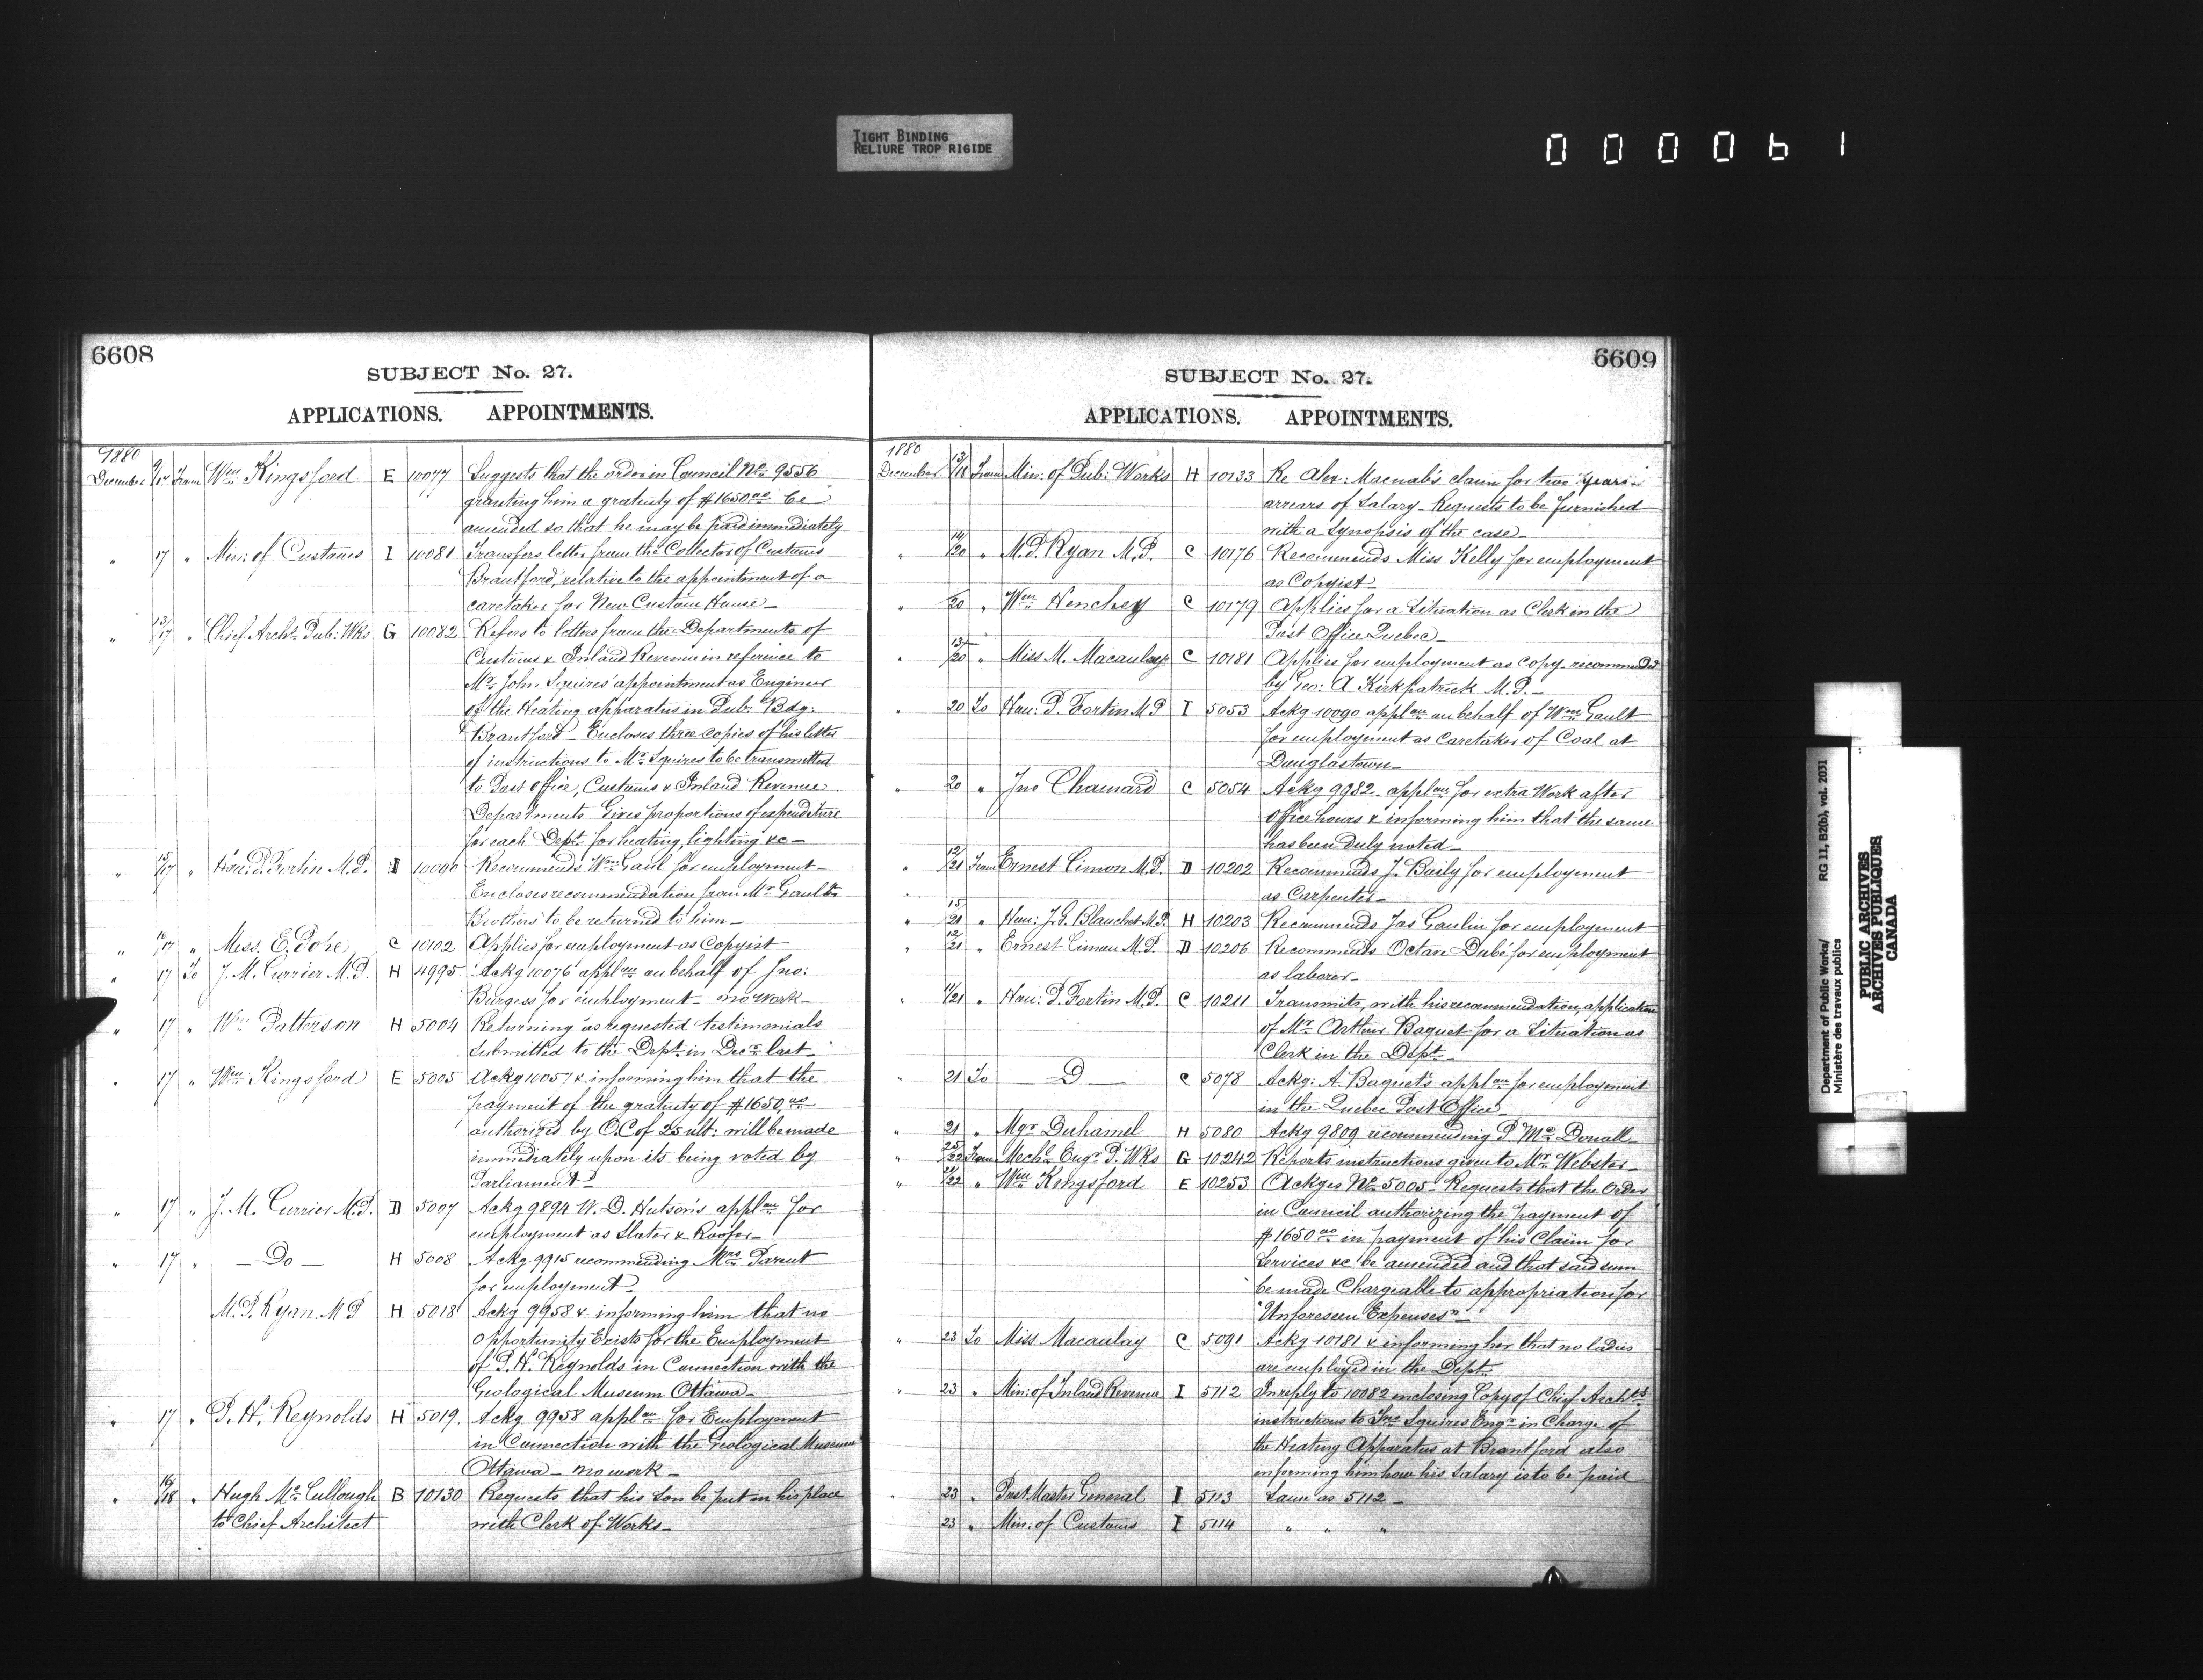 TIGHT BINDING
RELIURE TROP RIGIDE
000061
6608
SUBJECT No. 27.
APPLICATIONS. APPOINTMENTS.
1880
December 9/17 From Wm Kingsford E 10077 Suggests that the order in Council No 9556
granting him a gratuity of $1650.00 be
amended so that he may be paid immediately
" 17 " Min: of Customs I 10081 Transfers letter from the Collector of Customs
Brantford, relative to the appointment of a
caretaker for New Custom House_
" 13/17 " Chief Archt. Pub: Wks G 10082 Refers to letters from the Departments of
Customs & Inland Revenue in reference to
Mr. John Squires' appointment as Engineer
of the Heating apparatus in Pub: Bdg:
Brantford_ Encloses three copies of his letter
of instructions to Mr. Squires to be transmitted
to Post Office, Customs & Inland Revenue
Departments_ Gives proportions of expenditure
for each Dept. for heating, lighting &c_
" 15/17 " Hon: P. Fortin M.P. I 10090 Recommends Wm Gaul for employment_
Encloses recommendation from Mr Gault
Brothers to be returned to him_
" 16/17 " Miss. E. Dore C 10102 Applies for employment as Copyist
" 17 To J. M. Currier M.P. H 4995 Ackg 10076 applon on behalf of Jno:
Burgess for employment_ no work_
" 17 " Wm Patterson H 5004 Returning as requested testimonials
submitted to the Dept. in Decr last_
" 17 " Wm Kingsford E 5005 Ackg 10057 & informing him that the
payment of the gratuity of $1650.00
authorized by O.C of 25 ult: will be made
immediately upon its being voted by
Parliament_
" 17 " J. M. Currier M.P. D 5007 Ackg 9894 W. D. Hutson's applon for
employment as Slater & Roofer_
" 17 " _Do_ H 5008 Ackg 9915 recommending Mrs Parent
for employment_
M. P. Ryan M P H 5018 Ackg 9958 & informing him that no
opportunity Exists for the Employment
of P. H. Reynolds in Connection with the
Geological Museum Ottawa_
" 17 " P. H. Reynolds H 5019. Ackg 9958 applon for Employment
in Connection with the Geological Museum
Ottawa_ no work_
" 16/18 " Hugh McCullough B 10130 Requests that his Son be put in his place
to Chief Architect with Clerk of Works_
6609
SUBJECT No. 27.
APPLICATIONS. APPOINTMENTS.
1880
December 13/18 From Min: of Pub: Works H 10133 Re Alex: Macnab's claim for two years
arrears of Salary_ Requests to be furnished
with a Synopsis of the case_
" 14/20 " M. P. Ryan M.P. C 10176 Recommends Miss Kelly for employment
as Copyist_
" 20 " Wm Henchey C 10179 Applies for a Situation as Clerk in the
Post Office Quebec_
" 13/20 " Miss M. Macaulay C 10181 Applies for employment as Copy. recommended
by Geo: A Kirkpatrick M.P._
" 20 To Hon: P. Fortin M P I 5053 Ackg 10090 applon on behalf of Wm Gault
for employment as Caretaker of Coal at
Douglastown_
" 20 " Jno Chainard C 5054 Ackg 9982. applon for extra Work after
Office hours & informing him that the same
has been duly noted_
" 12/21 From Ernest Cimon M.P. D 10202 Recommends J. Baily for employment
as Carpenter_
" 15/21 " Hon: J. G. Blanchet M.P. H 10203 Recommends Jas Gaulin for employment
" 12/21 " Ernest Cimon M.P. D 10206 Recommends Octave Dubé for employment
as laborer_
" 11/21 " Hon: P. Fortin M.P. C 10211 Transmits, with his recommendation, application
of Mr. Arthur Baquet for a Situation as
Clerk in the Dept._
" 21 To _D_ C 5078 Ackg: A. Baquet's applon for employment
in the Quebec Post Office
" 21 " Mgr Duhamel H 5080 Ackg 9809 recommending P. McDonall
" 22 From Mechl Engr P. Wks G 10242 Reports instructions given to Mr. Webster_
" 21/22 " Wm Kingsford E 10253 Ackges No 5005_ Requests that the Order
in Council authorizing the payment of
$1650.00 in payment of his Claim for
Services &c be amended and that said sum
be made Chargeable to appropriation for
"Unforeseen Expenses"_
" 23 To Miss Macaulay C 5091 Ackg 10181 & informing her that no ladies
are employed in the Dept.
" 23 " Min: of Inland Revenue I 5112 In reply to 10082 enclosing Copy of Chief Archts
instructions to Jno Squires Engr in Charge of
the Heating Apparatus at Brantford also
informing him how his Salary is to be paid
23 " Post Master General I 5113 Same as 5112_
23 " Min: of Customs I 5114 " " "
Department of Public Works/ RG 11, B2(b), vol. 2031
Ministère des travaux publics
PUBLIC ARCHIVES
ARCHIVES PUBLIQUES
CANADA